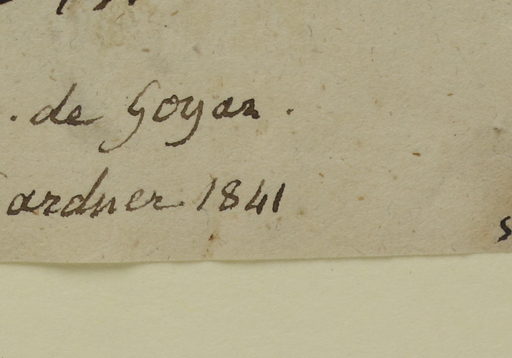 . de Goyaz.
ardner 1841